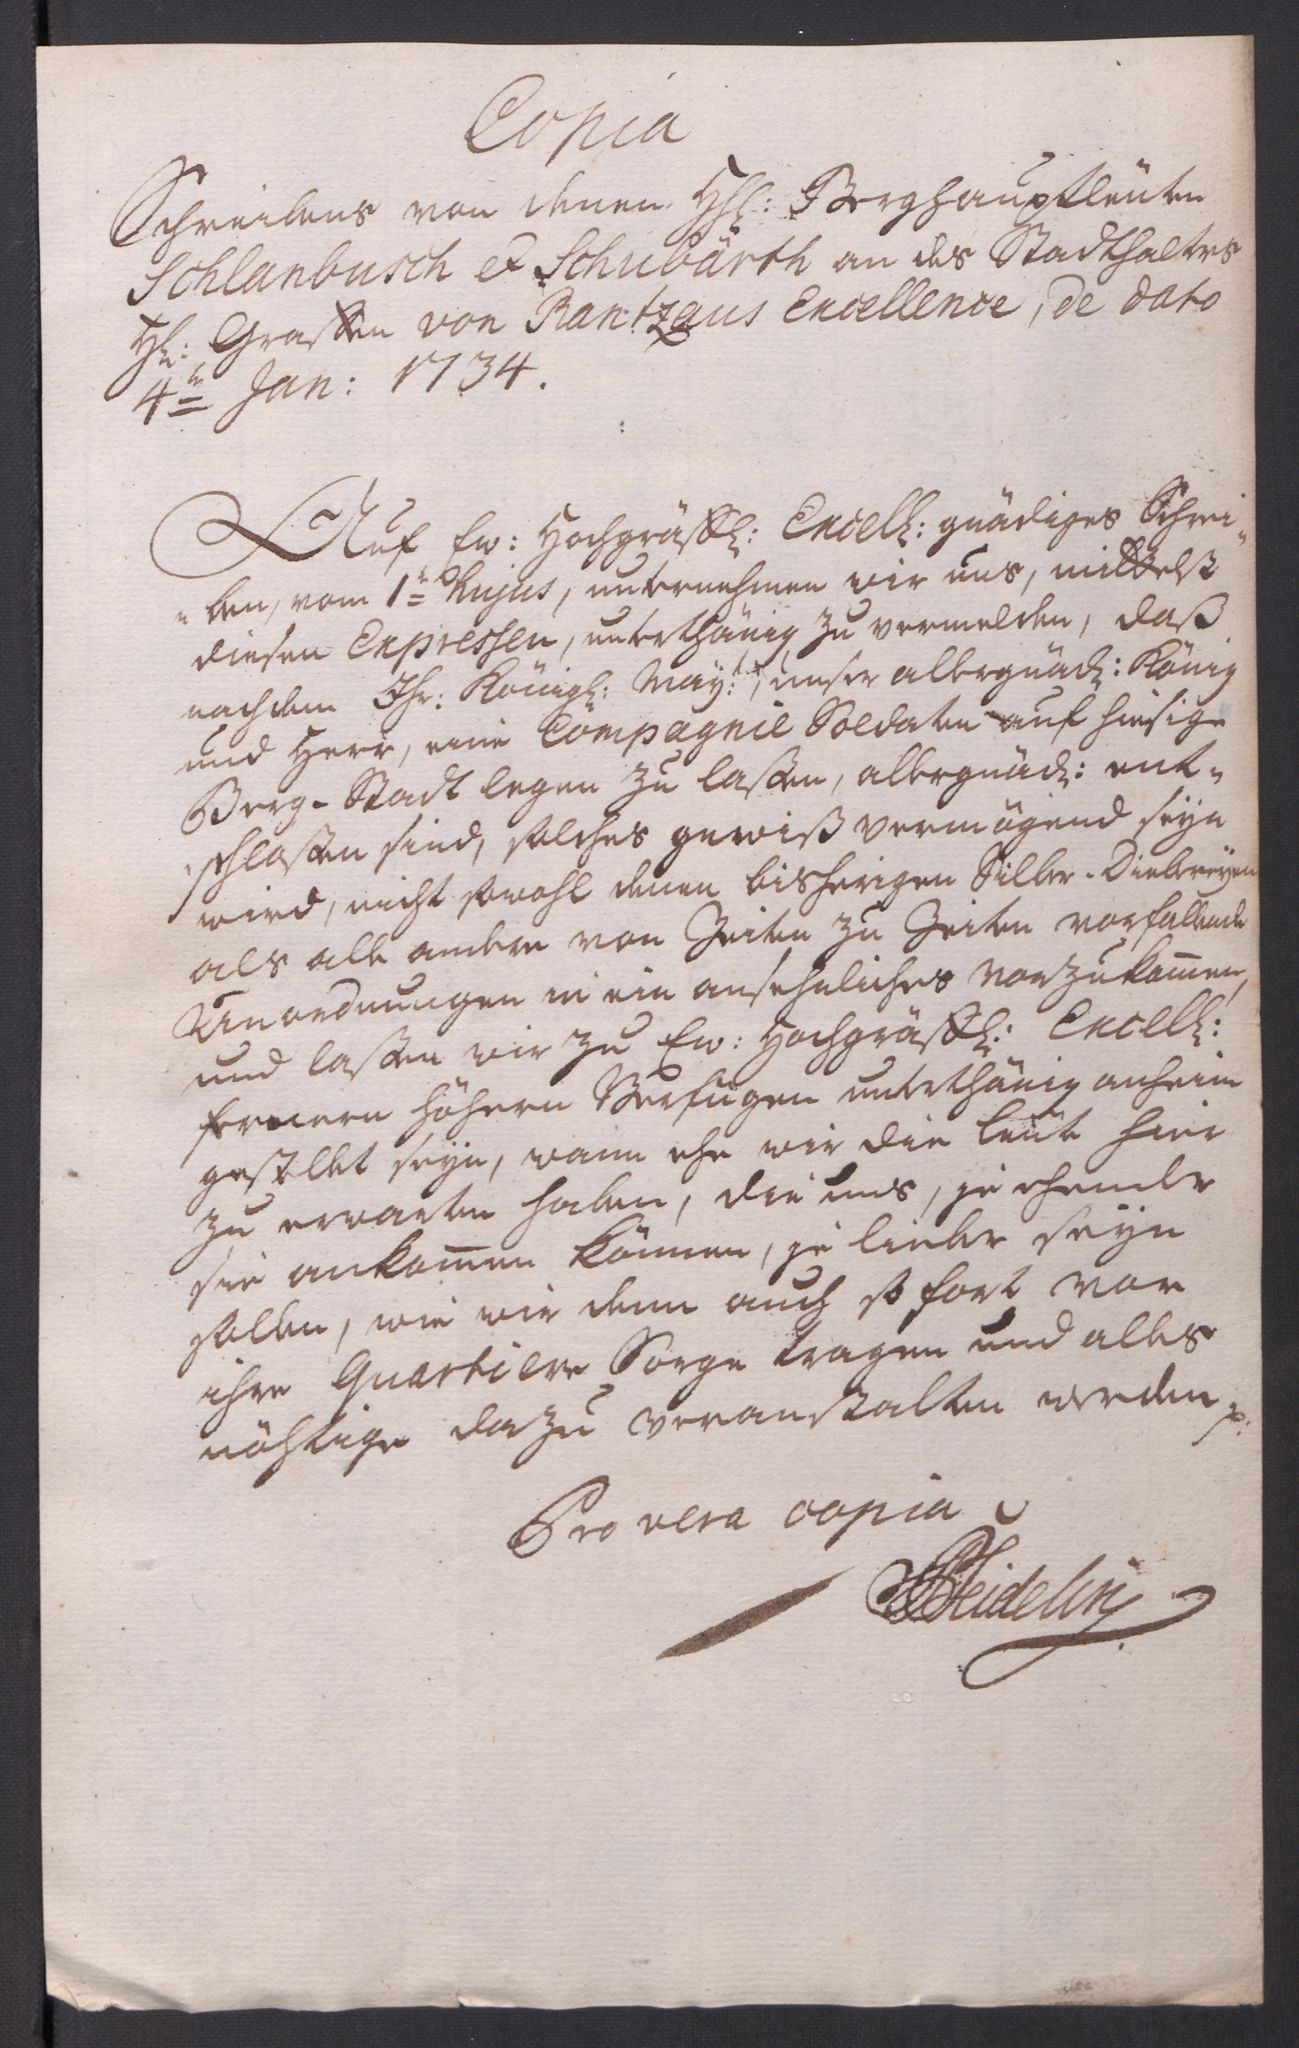 Copia
Schreibens von denen Hh: Berghauptleüten
Schlanbusch et Schubärth an des Stadthalters
Hl: Graffen von Rantzaus Excellence, de dato
4tn Jan: 1734.
Auf Ew: Hochgräffl: Excell: gnädiges Schrei„
„ben, vom 1tn hujus, unternehmen wir uns, mittelst
diesen Expressen, unterthänig zu vermelden, daß
nachdem Ihr: Königl: May:t, unser allergnäd: König
und Herr, eine Compagnie Soldaten auf hiesige
Berg-Stadt legen zu laßen, allergnäd: ent„
schloßen sind, solches gewiß vermögend seyn
wird, nicht sowohl denen bisherigen Silber-Diebereyen
als alle andere von Zeiten zu Zeiten vorfallende
Unordnungen in ein ansehnliches vorzukom̄en,
und laßen wir zu Ew: Hochgräffl: Excell:
fernern höhern Verfügen unterthänig anheim
gestellet seyn, wann ehe wir die leüte hier
zu erwarten haben, die uns, je ehender
sie ankom̄en können, je lieber seyn
sollen, wie wir denn auch so fort vor
ihre Quartiere Sorge tragen und alles
nöhtige dazu veranstalten werden p:
Pro vera copia